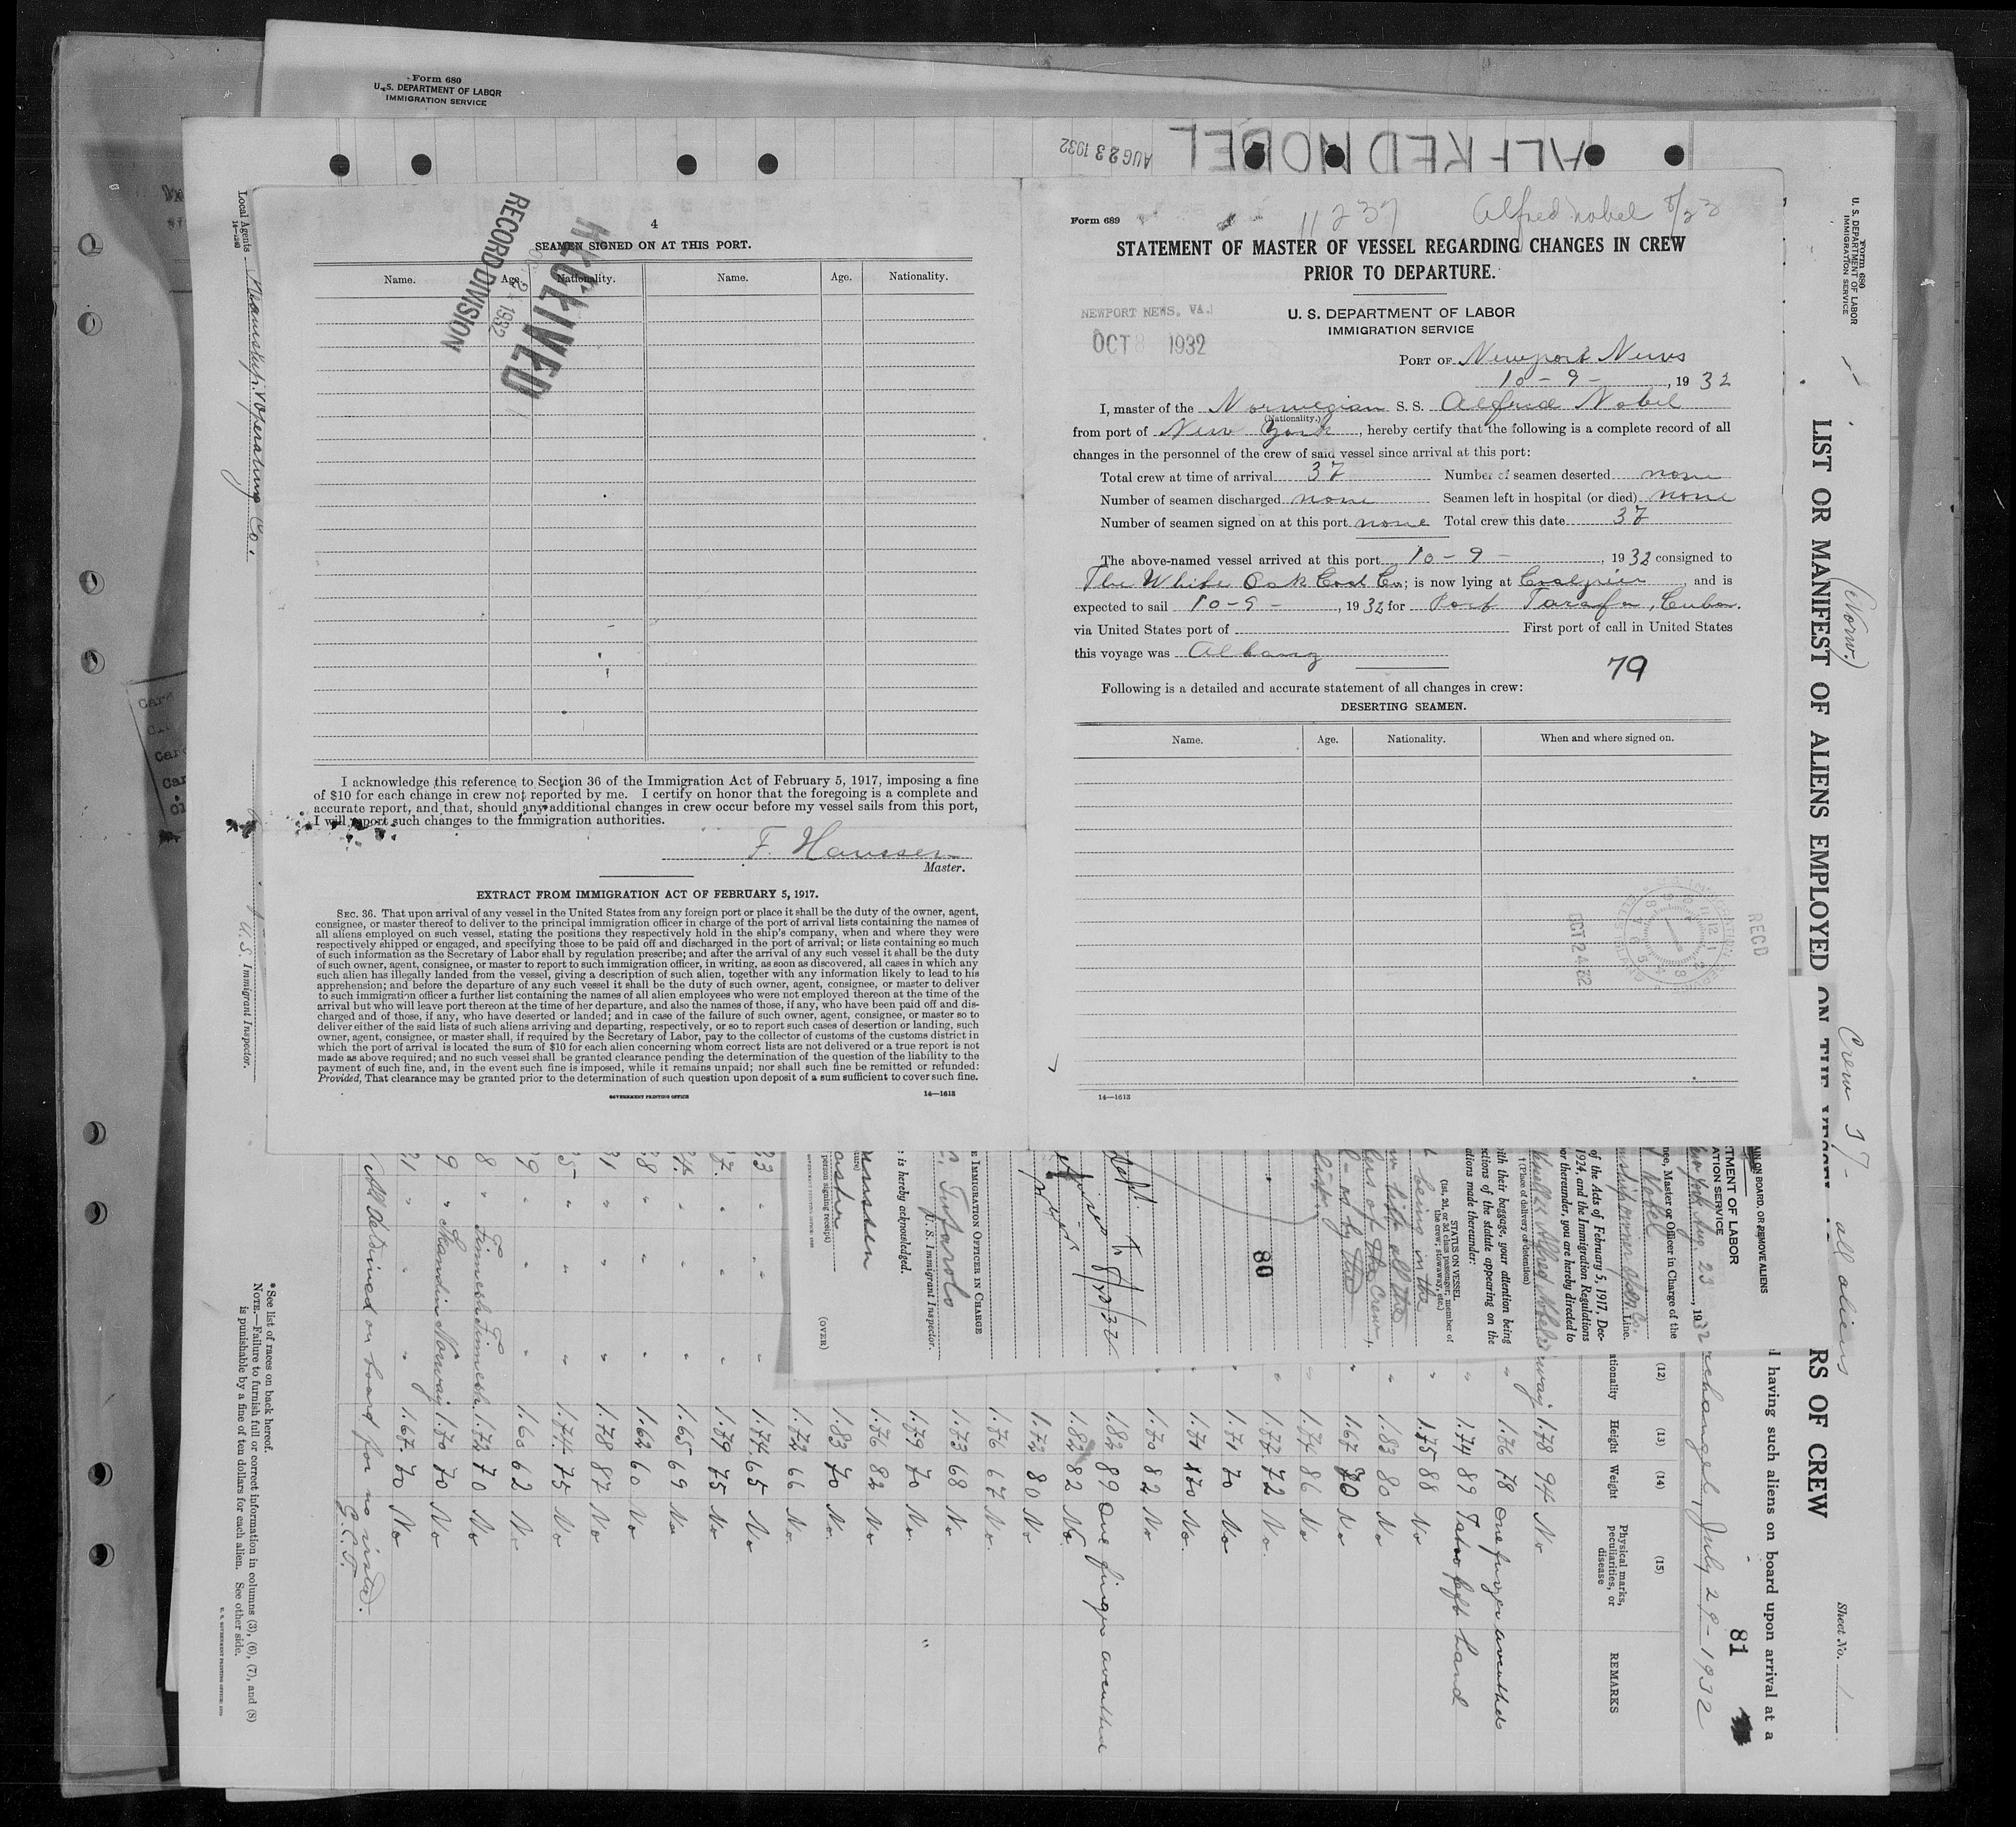 Form 680
U. S. DEPARTMENT OF LABOR
IMMIGRATION SERVICE
AUG 23 1932
ALFRED NOBEL
Local Agents
14—1240
Steamship Operating Co.
U.S. Immigrant Inspector.
4
SEAMEN SIGNED ON AT THIS PORT.
Name. Age. Nationality. Name. Age. Nationality.
RECEIVED
1932
RECORD DIVISION
I acknowledge this reference to Section 36 of the Immigration Act of February 5, 1917, imposing a fine
of $10 for each change in crew not reported by me. I certify on honor that the foregoing is a complete and
accurate report, and that, should any additional changes in crew occur before my vessel sails from this port,
I will report such changes to the immigration authorities.
F. Haussen
Master.
EXTRACT FROM IMMIGRATION ACT OF FEBRUARY 5, 1917.
SEC. 36. That upon arrival of any vessel in the United States from any foreign port or place it shall be the duty of the owner, agent,
consignee, or master thereof to deliver to the principal immigration officer in charge of the port of arrival lists containing the names of
all aliens employed on such vessel, stating the positions they respectively hold in the ship's company, when and where they were
respectively shipped or engaged, and specifying those to be paid off and discharged in the port of arrival; or lists containing so much
of such information as the Secretary of Labor shall by regulation prescribe; and after the arrival of any such vessel it shall be the duty
of such owner, agent, consignee, or master to report to such immigration officer, in writing, as soon as discovered, all cases in which any
such alien has illegally landed from the vessel, giving a description of such alien, together with any information likely to lead to his
apprehension; and before the departure of any such vessel it shall be the duty of such owner, agent, consignee, or master to deliver
to such immigration officer a further list containing the names of all alien employees who were not employed thereon at the time of the
arrival but who will leave port thereon at the time of her departure, and also the names of those, if any, who have been paid off and dis-
charged and of those, if any, who have deserted or landed; and in case of the failure of such owner, agent, consignee, or master so to
deliver either of the said lists of such aliens arriving and departing, respectively, or so to report such cases of desertion or landing, such
owner, agent, consignee, or master shall, if required by the Secretary of Labor, pay to the collector of customs of the customs district in
which the port of arrival is located the sum of $10 for each alien concerning whom correct lists are not delivered or a true report is not
made as above required; and no such vessel shall be granted clearance pending the determination of the question of the liability to the
payment of such fine, and, in the event such fine is imposed, while it remains unpaid; nor shall such fine be remitted or refunded:
Provided, That clearance may be granted prior to the determination of such question upon deposit of a sum sufficient to cover such fine.
GOVERNMENT PRINTING OFFICE
14—1613
Form 689
11237 Alfred Nobel 8/23
STATEMENT OF MASTER OF VESSEL REGARDING CHANGES IN CREW
PRIOR TO DEPARTURE.
NEWPORT NEWS, VA.
OCT 8 1932
U. S. DEPARTMENT OF LABOR
IMMIGRATION SERVICE
PORT OF Newport News
10 - 9 - , 19 32
I, master of the Norwegian S. S. Alfred Nobel
(Nationality.)
from port of New York, hereby certify that the following is a complete record of all
changes in the personnel of the crew of said vessel since arrival at this port:
Total crew at time of arrival 37 Number of seamen deserted none
Number of seamen discharged none Seamen left in hospital (or died) none
Number of seamen signed on at this port none Total crew this date 37
The above-named vessel arrived at this port 10 - 9 - , 19 32 consigned to
The White Oak Coal Co.; is now lying at Coalpier, and is
expected to sail 10 - 9 - , 19 32 for Port Tarafa, Cuba.
via United States port of First port of call in United States
this voyage was Albany
79
Following is a detailed and accurate statement of all changes in crew:
DESERTING SEAMEN.
Name. Age. Nationality. When and where signed on.
RECD
OCT 24 32
14—1613
Form 680
U. S. DEPARTMENT OF LABOR
IMMIGRATION SERVICE
LIST OR MANIFEST OF ALIENS EMPLOYED ON THE
RS OF CREW
(Norw.)
Crew 37 - all aliens
Sheet No. 1
l having such aliens on board upon arrival at a
81
rchangel, July 29 - 1932
ON BOARD, OR REMOVE ALIENS
TMENT OF LABOR
ATION SERVICE
New York Aug. 23, 1932
nee, Master or Officer in Charge of the
Nobel
Line.
of the Acts of February 5, 1917, Dec-
1924, and the Immigration Regulations
or thereunder, you are hereby directed to
(Place of delivery or detention)
ith their baggage, your attention being
ctions of the statute appearing on the
ations made thereunder:
STATUS ON VESSEL
(1st, 2d, or 3d class passenger, member of
the crew; stowaway, etc.)
being in the
80
8/23/32
E IMMIGRATION OFFICER IN CHARGE
Tufarolo
U. S. Immigrant Inspector.
is hereby acknowledged.
person signing receipt)
(OVER)
(12) (13) (14) (15)
ationality Height Weight Physical marks, peculiarities, or disease REMARKS
1.78 94 No
1.76 78 One finger
1.74 89 Tattoo left hand
1.75 88 No
1.83 80 No
1.67 70 No
1.74 86 No
1.77 72 No.
1.71 70 No
1.71 70 No.
1.70 82 No
1.82 89 One finger
1.82 82 No.
1.72 80 No
1.76 67 No.
1.73 68 No
1.79 70 No.
1.76 82 No
1.83 70 No.
1.72 66 No.
1.74 65 No
1.79 75 No
1.65 69 No
1.62 60 No
1.78 87 No
1.74 75 No
1.60 62 No
Finnish Finnish 1.72 70 No
Skandin Norway 1.70 70 No
1.67 70 No
All detained on board for no visa.
* See list of races on back hereof.
NOTE.—Failure to furnish full or correct information in columns (3), (6), (7), and (8)
is punishable by a fine of ten dollars for each alien. See other side.
U. S. GOVERNMENT PRINTING OFFICE